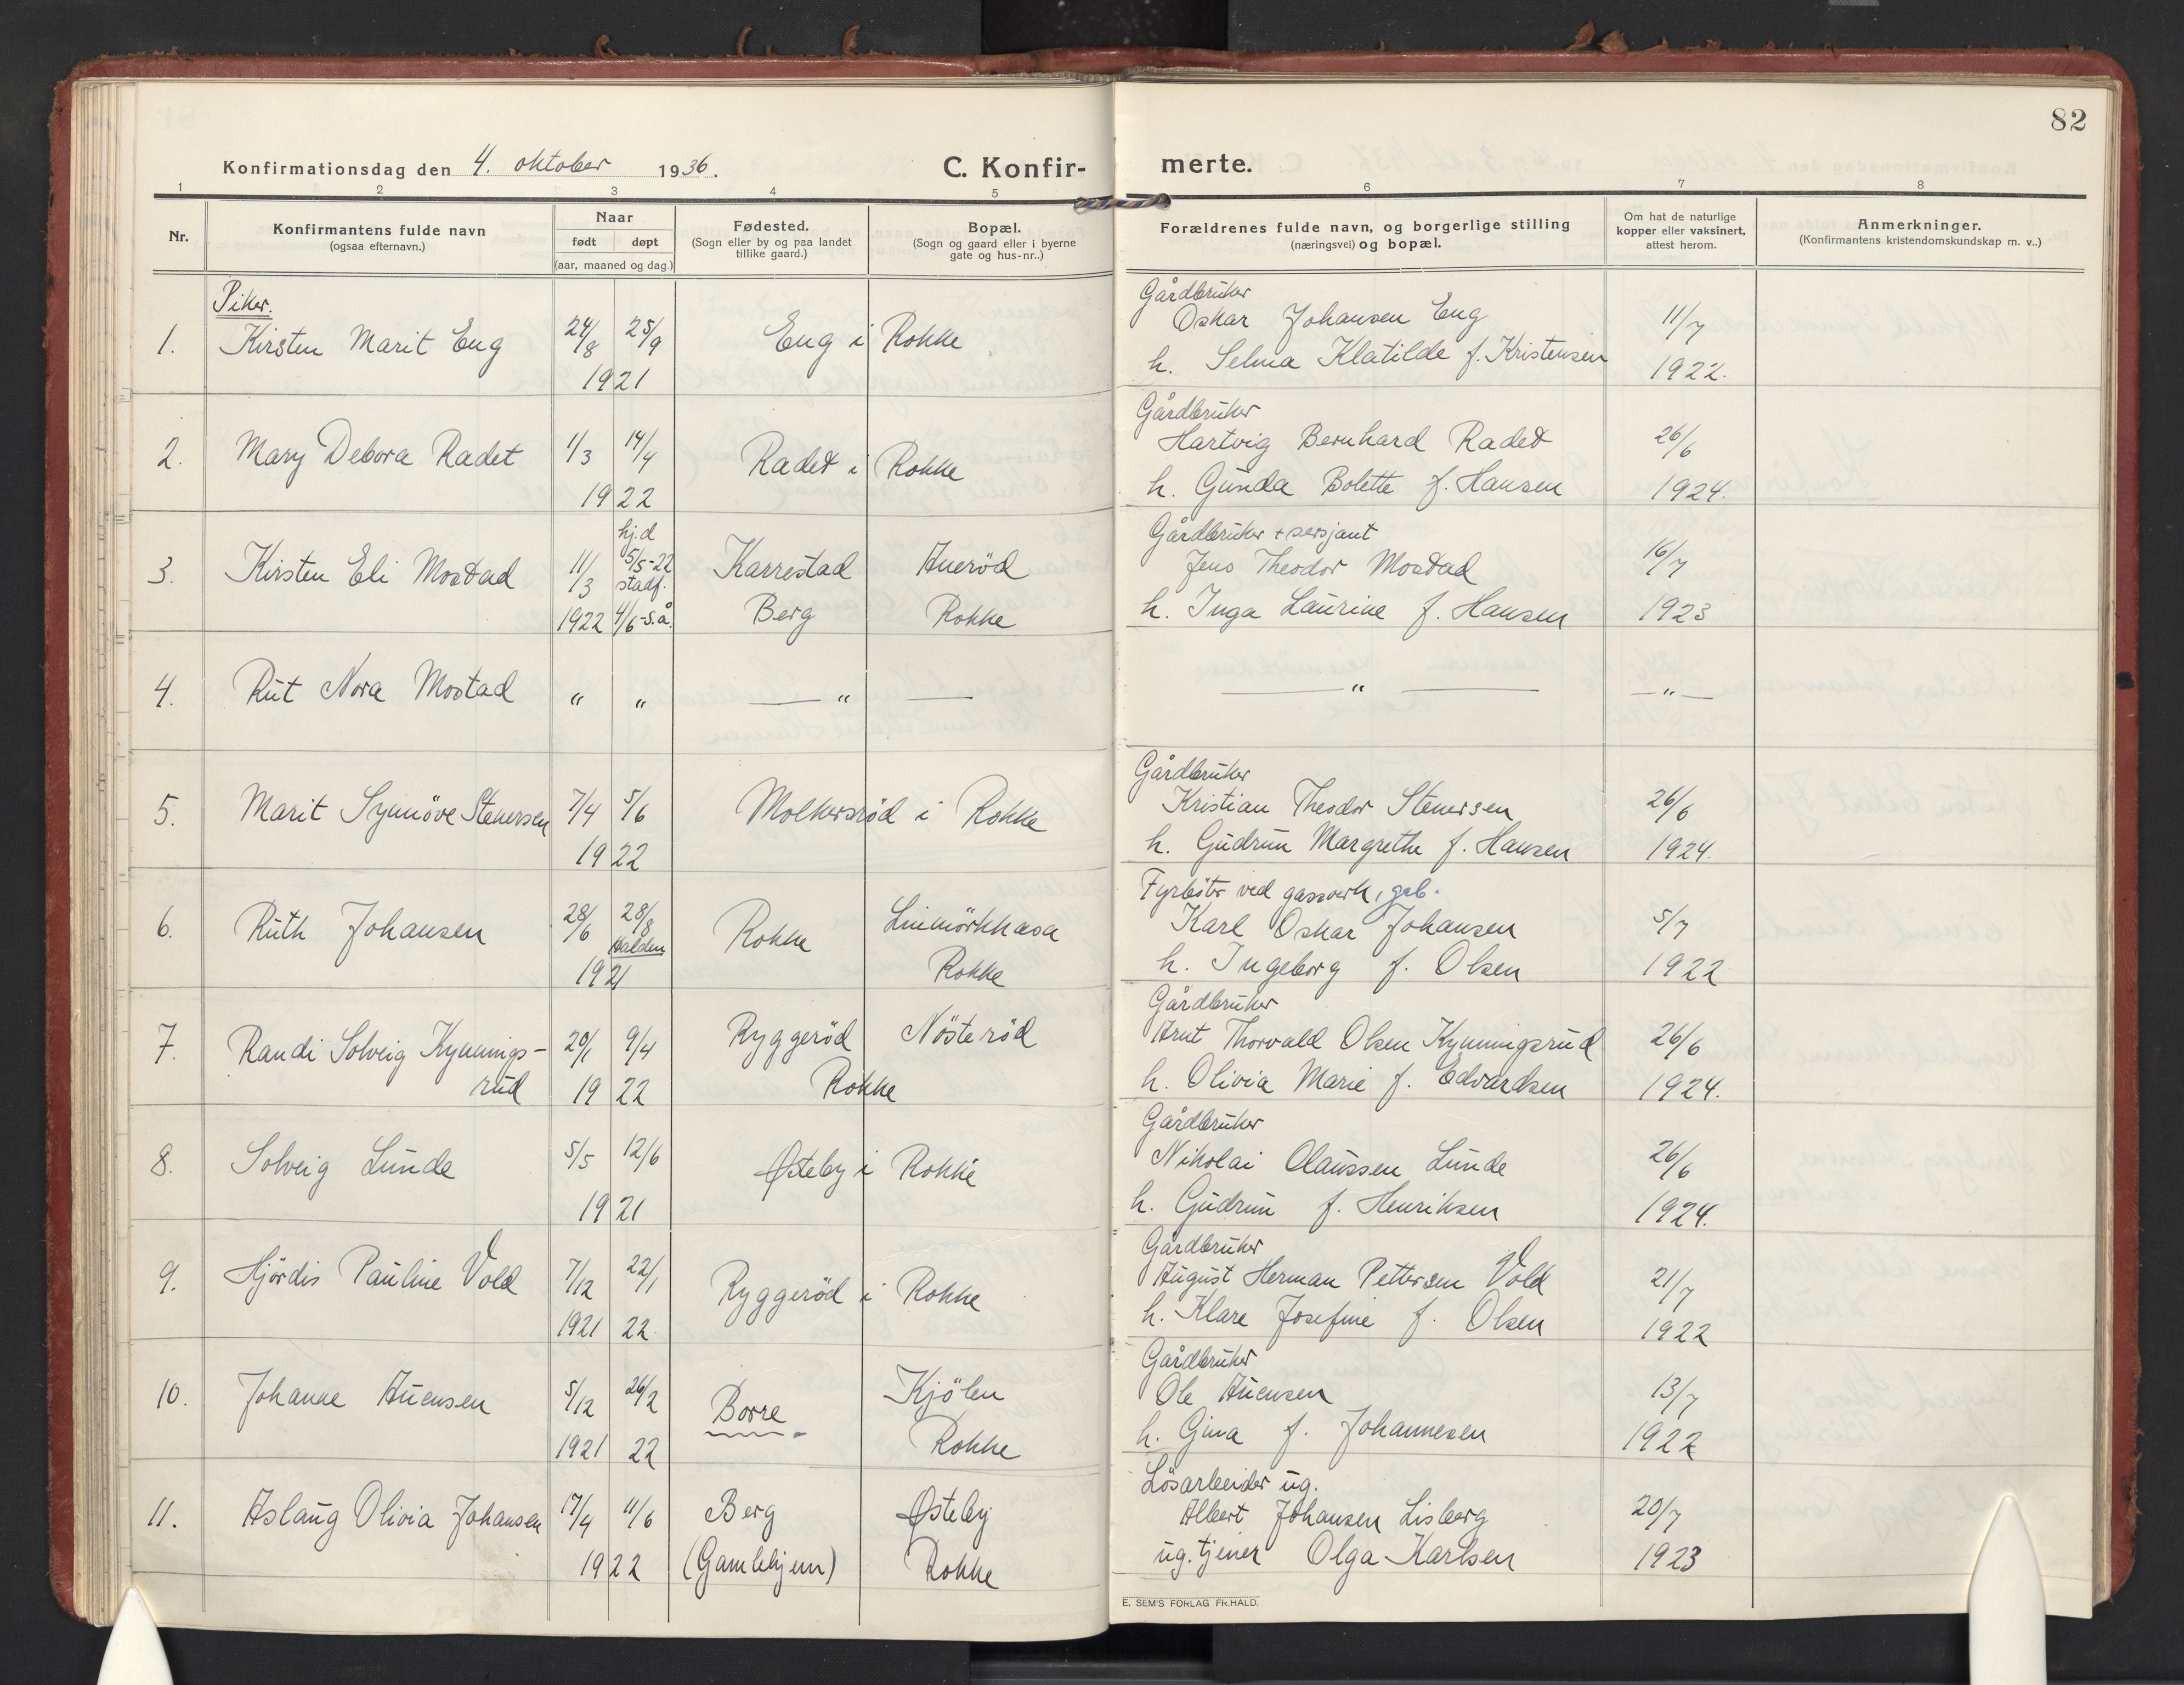 82
Konfirmationsdag den 4. oktober 1936.
C. Konfir-
merte.
1 2 3 4 5 6 7 8
Nr.
Konfirmantens fulde navn
(ogsaa efternavn.)
Naar
født døpt
(aar, maaned og dag.)
Fødested.
(Sogn eller by og paa landet
tillike gaard.)
Bopæl.
(Sogn og gaard eller i byerne
gate og hus-nr..)
Forældrenes fulde navn, og borgerlige stilling
(næringsvei) og bopæl.
Om hat de naturlige
kopper eller vaksinert,
attest herom.
Anmerkninger.
(Konfirmantens kristendomskundskap m. v..)
Piker.
1. Kirsten Marit Eng
24/8 25/9
1921
Eng i Rokke
Gårdbruker
Oskar Johansen Eng
h. Selma Klatilde f. Kristensen
11/7
1922.
2. Mary Debora Radet
1/3 14/4
1922
Radet i Rokke
Gårdbruker
Hartvig Bernhard Radet
h. Gunda Bolette f. Hansen
26/6
1924.
3. Kirsten Eli Mostad
11/3
1922
hj.d
5/5-22
stadf.
4/6-s.å.
Karrestad
Berg
Auerød
Rokke
Gårdbruker + sersjant
Jens Theodor Mostad
h. Inga Laurine f. Hansen
16/7
1923
4. Rut Nora Mostad
" " — " — — " — —"—
5. Marit Synnøve Stenersen
7/4 5/6
1922
Molkersrød i Rokke
Gårdbruker
Kristian Theodor Stenersen
h. Gudrun Margrethe f. Hansen
26/6
1924.
6. Ruth Johansen
28/6 28/8
Halden
1921
Rokke
Linmörkhasa
Rokke
Fyrböter ved gassverk, gcb.
Karl Oskar Johansen
h. Ingeborg f. Olsen
5/7
1922
7. Randi Solveig Kynnings-
rud
20/1 9/4
1922
Ryggerød Nösterød
Rokke
Gårdbruker
Arnt Thorvald Olsen Kynningsrud
h. Olivia Marie f. Edvardsen
26/6
1924.
8. Solveig Lunde
5/5 12/6
1921
Østeby i Rokke
Gårdbruker
Nikolai Olaussen Lunde
h. Gudrun f. Henriksen
26/6
1924.
9. Hjørdis Pauline Vold
7/12 22/1
1921 22
Ryggerød i Rokke
Gårdbruker
August Herman Pettersen Vold
h. Klare Josefine f. Olsen
21/7
1922
10. Johanne Auensen
5/12 26/2
1921 22
Borre
Kjölen
Rokke
Gårdbruker
Ole Auensen
h. Gina f. Johannesen
13/7
1922
11. Aslaug Olivia Johansen
17/4 11/6
1922
Berg
(Gamlehjem)
Østeby
Rokke
Lösarbeider ug.
Albert Johansen Lisberg
ug. tjener Olga Karlsen
20/7
1923
E. SEM'S FORLAG FR.HALD.